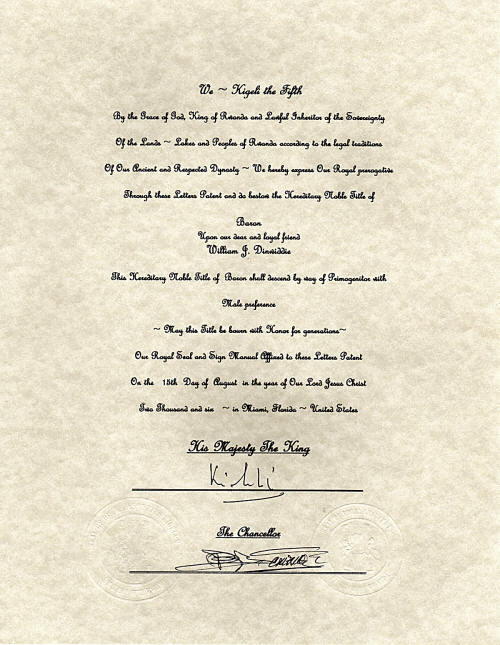 We ~ Kigeli the Fifth
By the Grace of God, King of Rwanda and Lawful Inheritor of the Sovereignty
Of the Lands ~ Lakes and Peoples of Rwanda according to the legal traditions
Of Our Ancient and Respected Dynasty ~ We hereby express Our Royal prerogative
Through these Letters Patent and do bestow the Hereditary Noble Title of
Baron
Upon our dear and loyal friend
William J. Dinwiddie
This Hereditary Noble Title of Baron shall descend by way of Primogenitor with
Male preference
~ May this Title be bourn with Honor for generations~
Our Royal Seal and Sign Manual Affixed to these Letters Patent
On the 15th Day of August in the year of Our Lord Jesus Christ
Two Thousand and six ~ in Miami, Florida ~ United States
His Majesty The King
The Chancellor